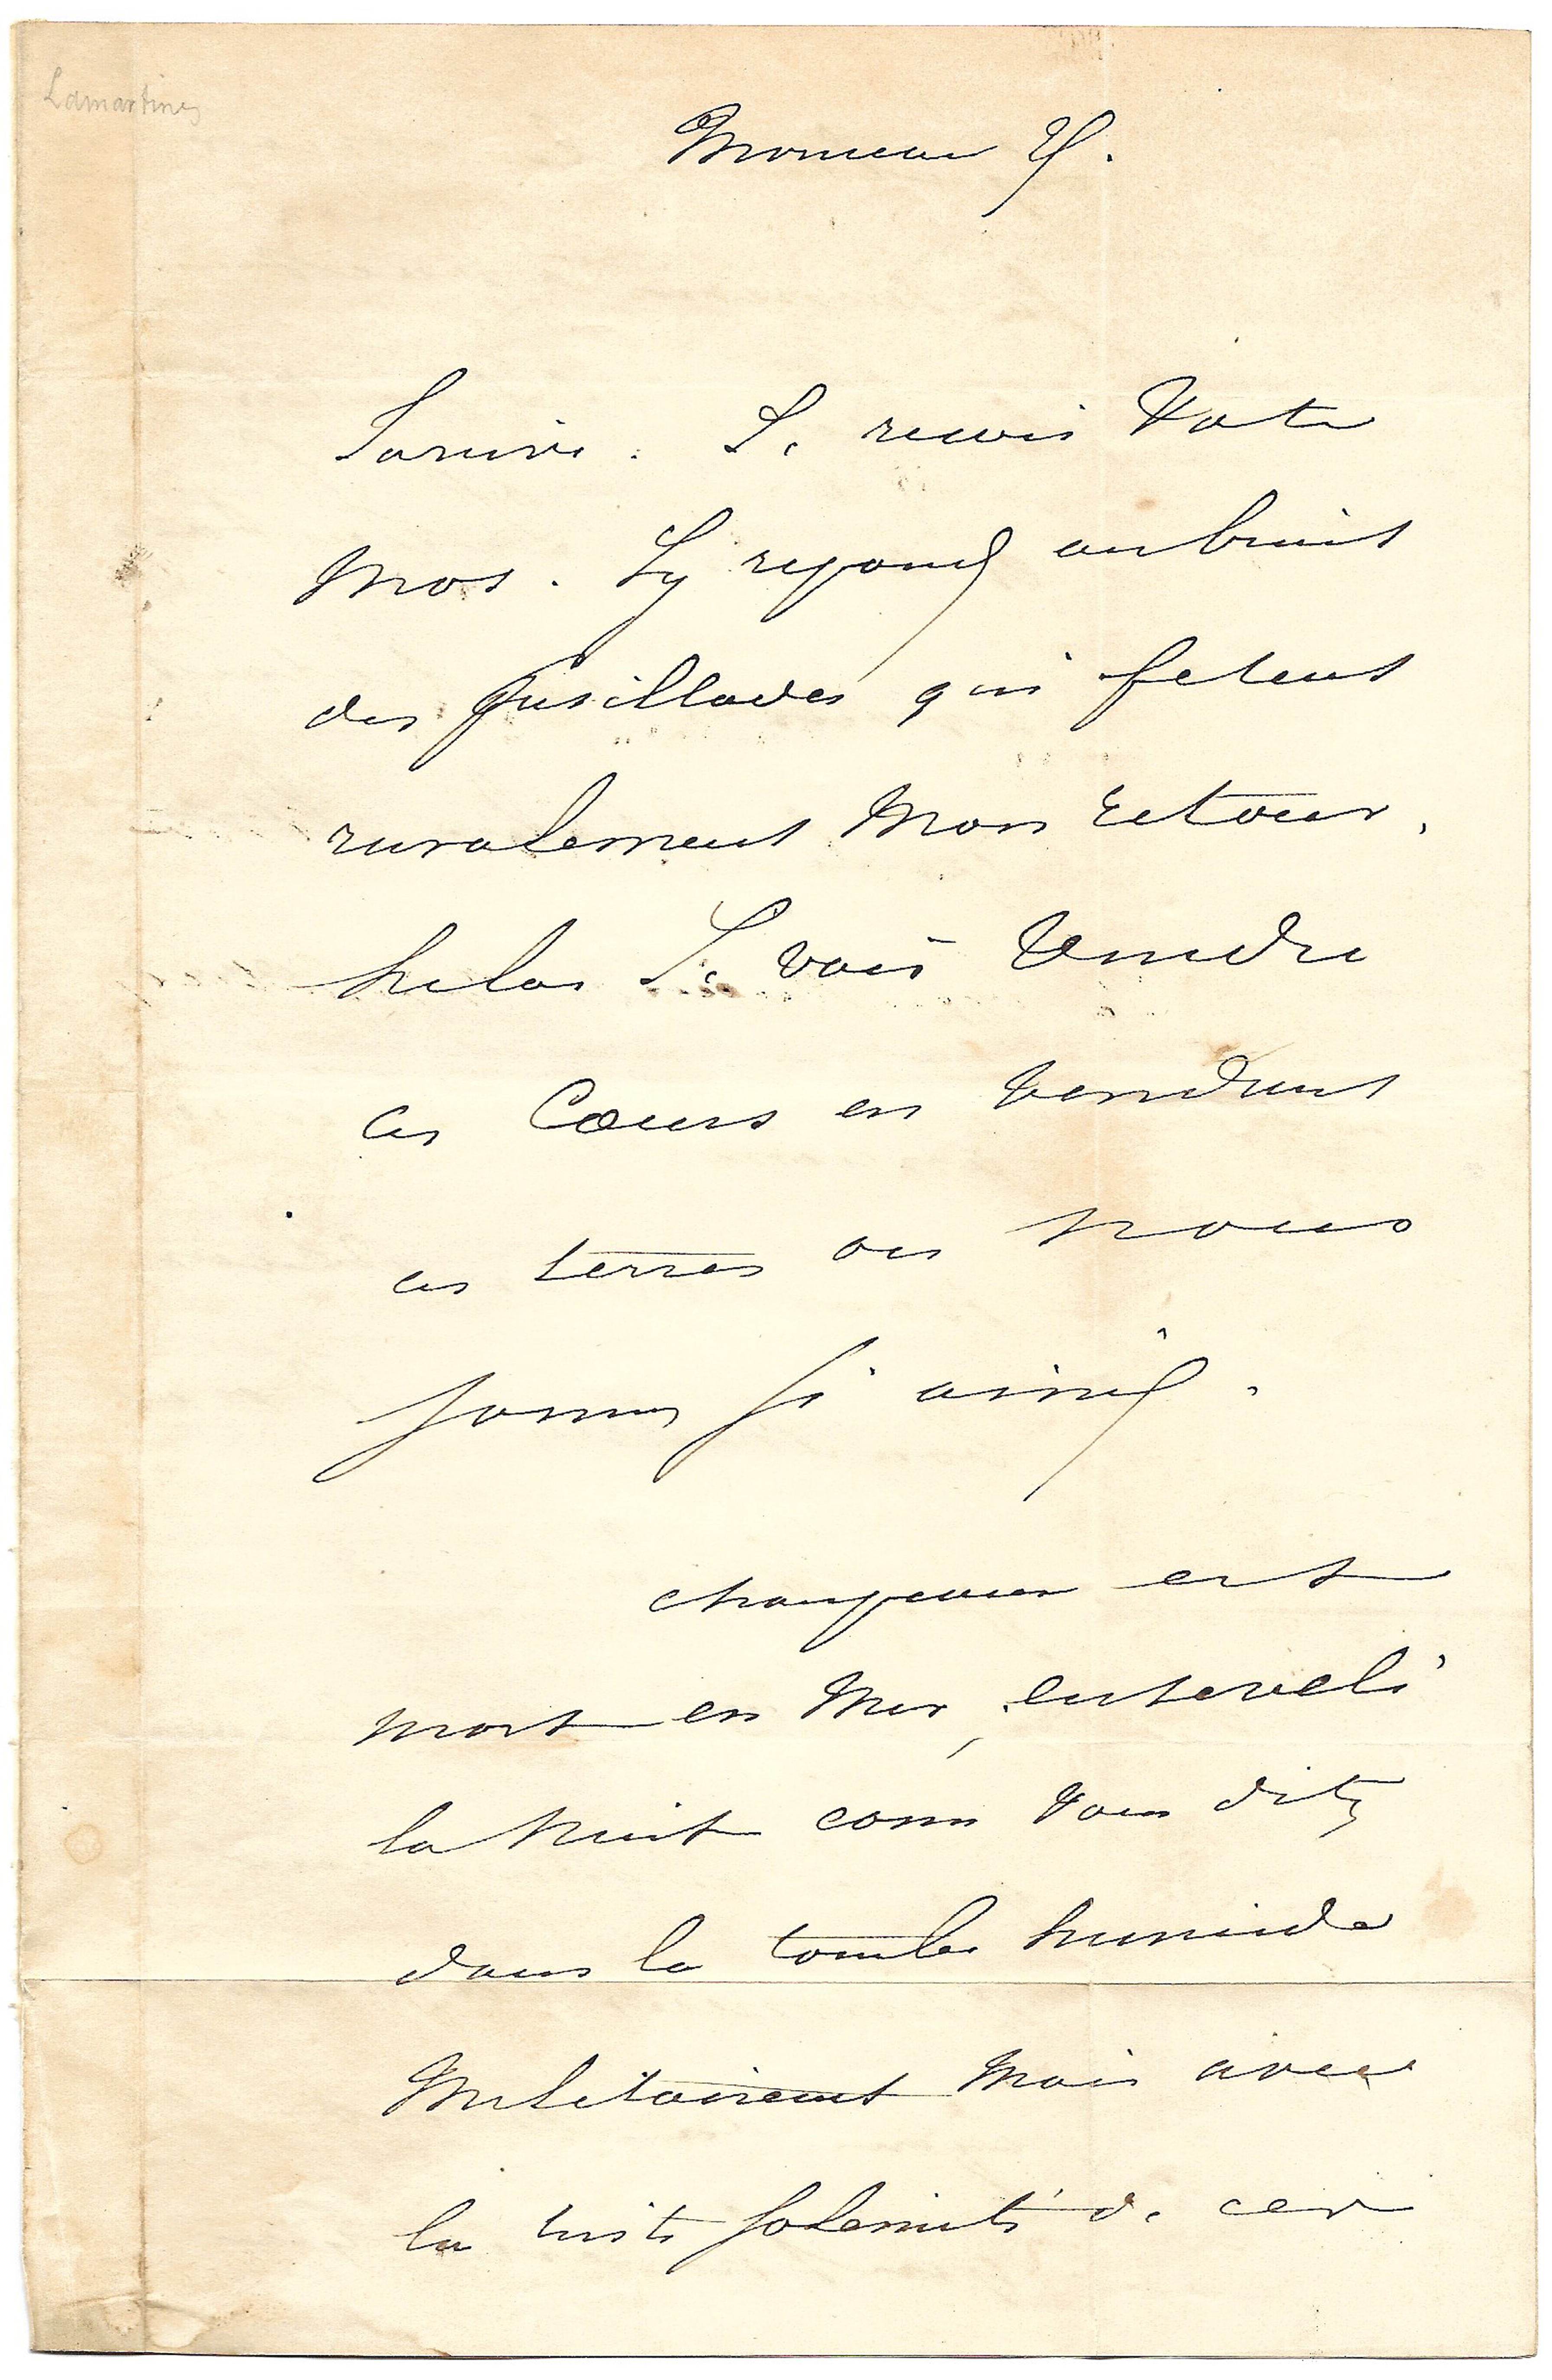 Lamartine
Monceau
J'arrive. Je recois Votre
Mot. J'y repond au bruit
des fusillades qui fetent
ruralement Mon retour.
helas Je vais Vendre
ces Coeurs en vendant
ces terres ou nous
sommes si aimés.
est
mort en Mer, enseveli
la Nuit com vous dites
dans la tombe humide
Militairemt Mais avec
la triste solennité de ces